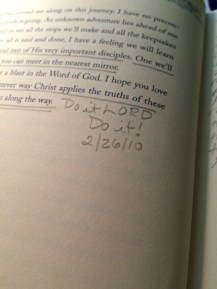 me along on this journey. I have no
is going. An unknown adventure lies ahead of me
to see all the stops we'll make and all the keepsakes
all is said and done, I have a feeling we will learn
and two of His very important disciples. One we'll
you can meet in the nearest mirror.
a blast in the Word of God. I hope you love
way Christ applies the truths of these
along the way.
Do it LORD
Do it!
2/26/10